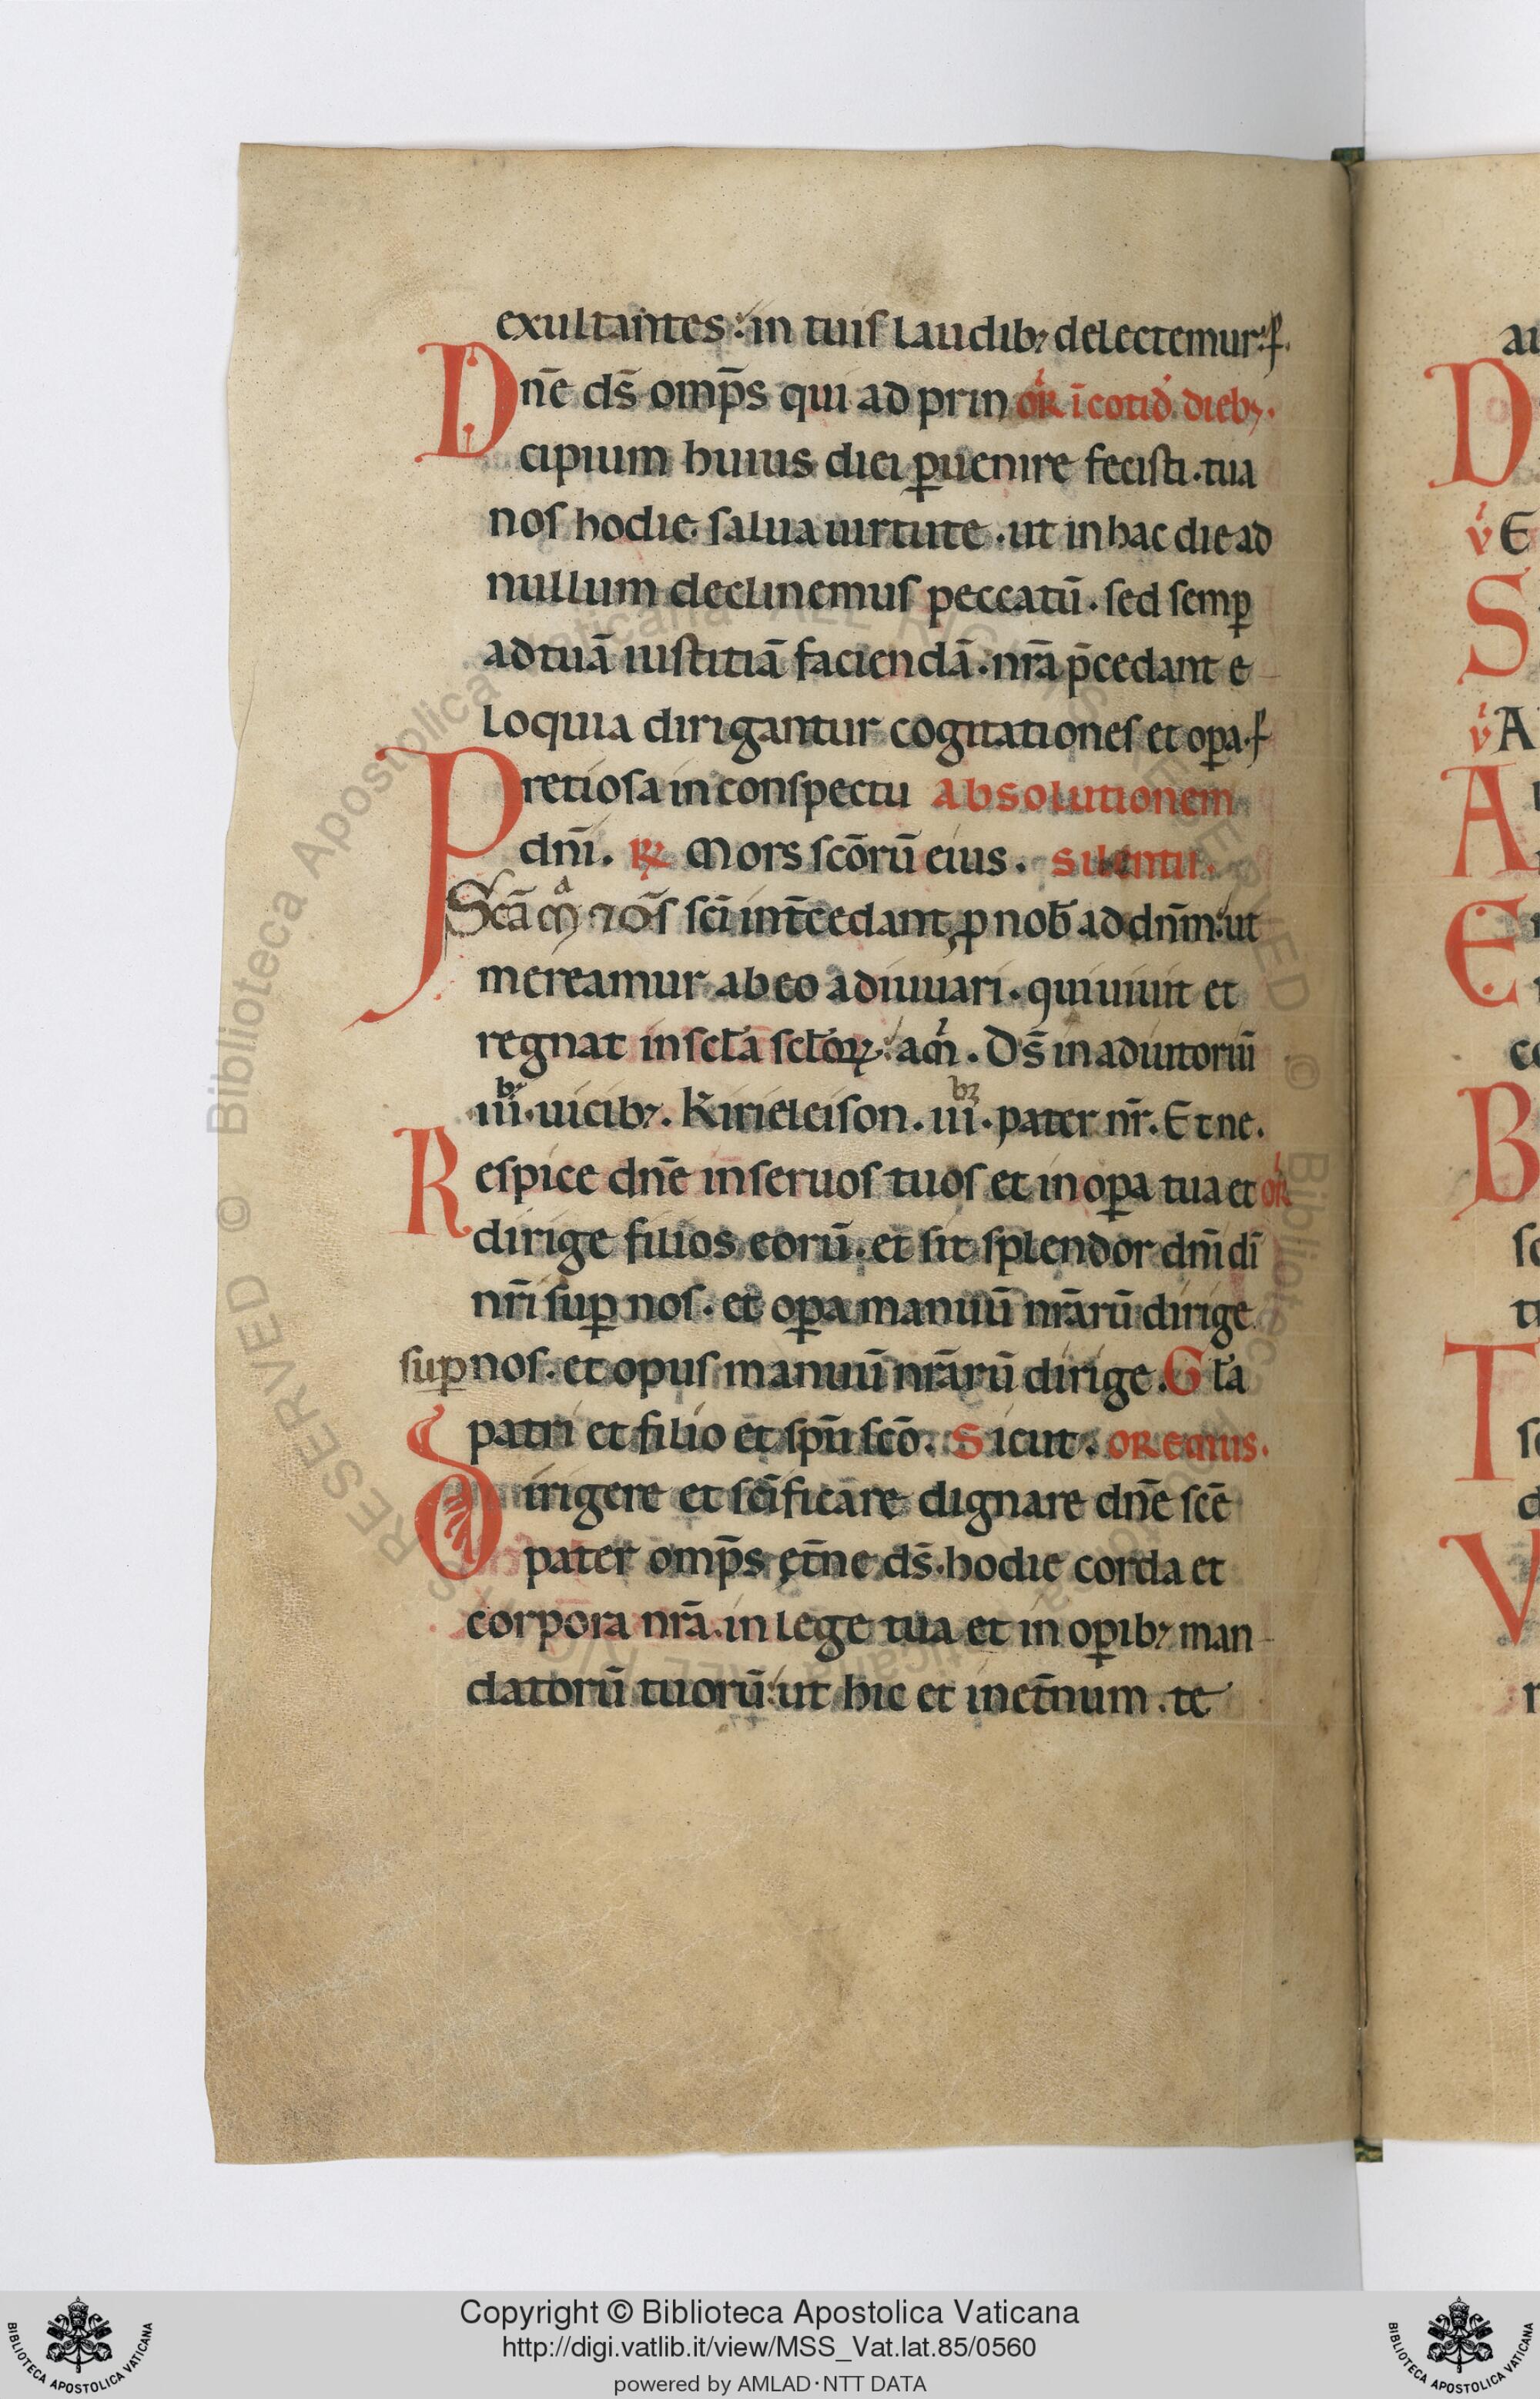 exultantes : in tuis laudibꝫ delectemur : ꝑ.
Dn̄e ds̄ omp̄s qui ad prin or̄ ī cotid. diebꝫ.
cipium huius diei ꝑuenire fecisti . tua
nos hodie salua uirtute . ut in hac die ad
nullum declinemus peccatū . sed semꝑ
ad tuā iustitiā faciendā . nr̄a p̄cedant e
loquia dirigantur cogitationes et oꝑa . ꝑ
Pretiosa in conspectu Absolutionem
dn̄i . ℟ Mors sc̄orū eius . silentii .
Sc̄a m̄ ⁊ om̄s sc̄i int̄cedant ꝓ nob̄ ad dn̄m : ut
mereamur ab eo adiuuari . qui uiuit et
regnat in scl̄a scl̄oꝝ : am̄ . Ds̄ in adiutoriū
iii . uicibꝫ . Kirieleison . iii . pater nr̄ . Et ne .
bꝫ
Respice dn̄e in seruos tuos et in oꝑa tua et or̄
dirige filios eorū . et sit splendor dn̄i dī
nr̄i suꝑ nos . et oꝑa manuū nr̄arū dirige
suꝑ nos . et opus manuū nr̄arū dirige . Gl̄a
patri et filio et sp̄u sc̄o . Sicut . oremus .
Dirigere et sc̄ificare dignare dn̄e sc̄e
pater omp̄s ęt̄ne ds̄ . hodie corda et
corpora nr̄a . in lege tua et in oꝑibꝫ man-
datorū tuorū : ut hic et in et̄num . te
Copyright © Biblioteca Apostolica Vaticana
http://digi.vatlib.it/view/MSS_Vat.lat.85/0560
powered by AMLAD·NTT DATA
BIBLIOTECA APOSTOLICA VATICANA
BIBLIOTECA APOSTOLICA VATICANA